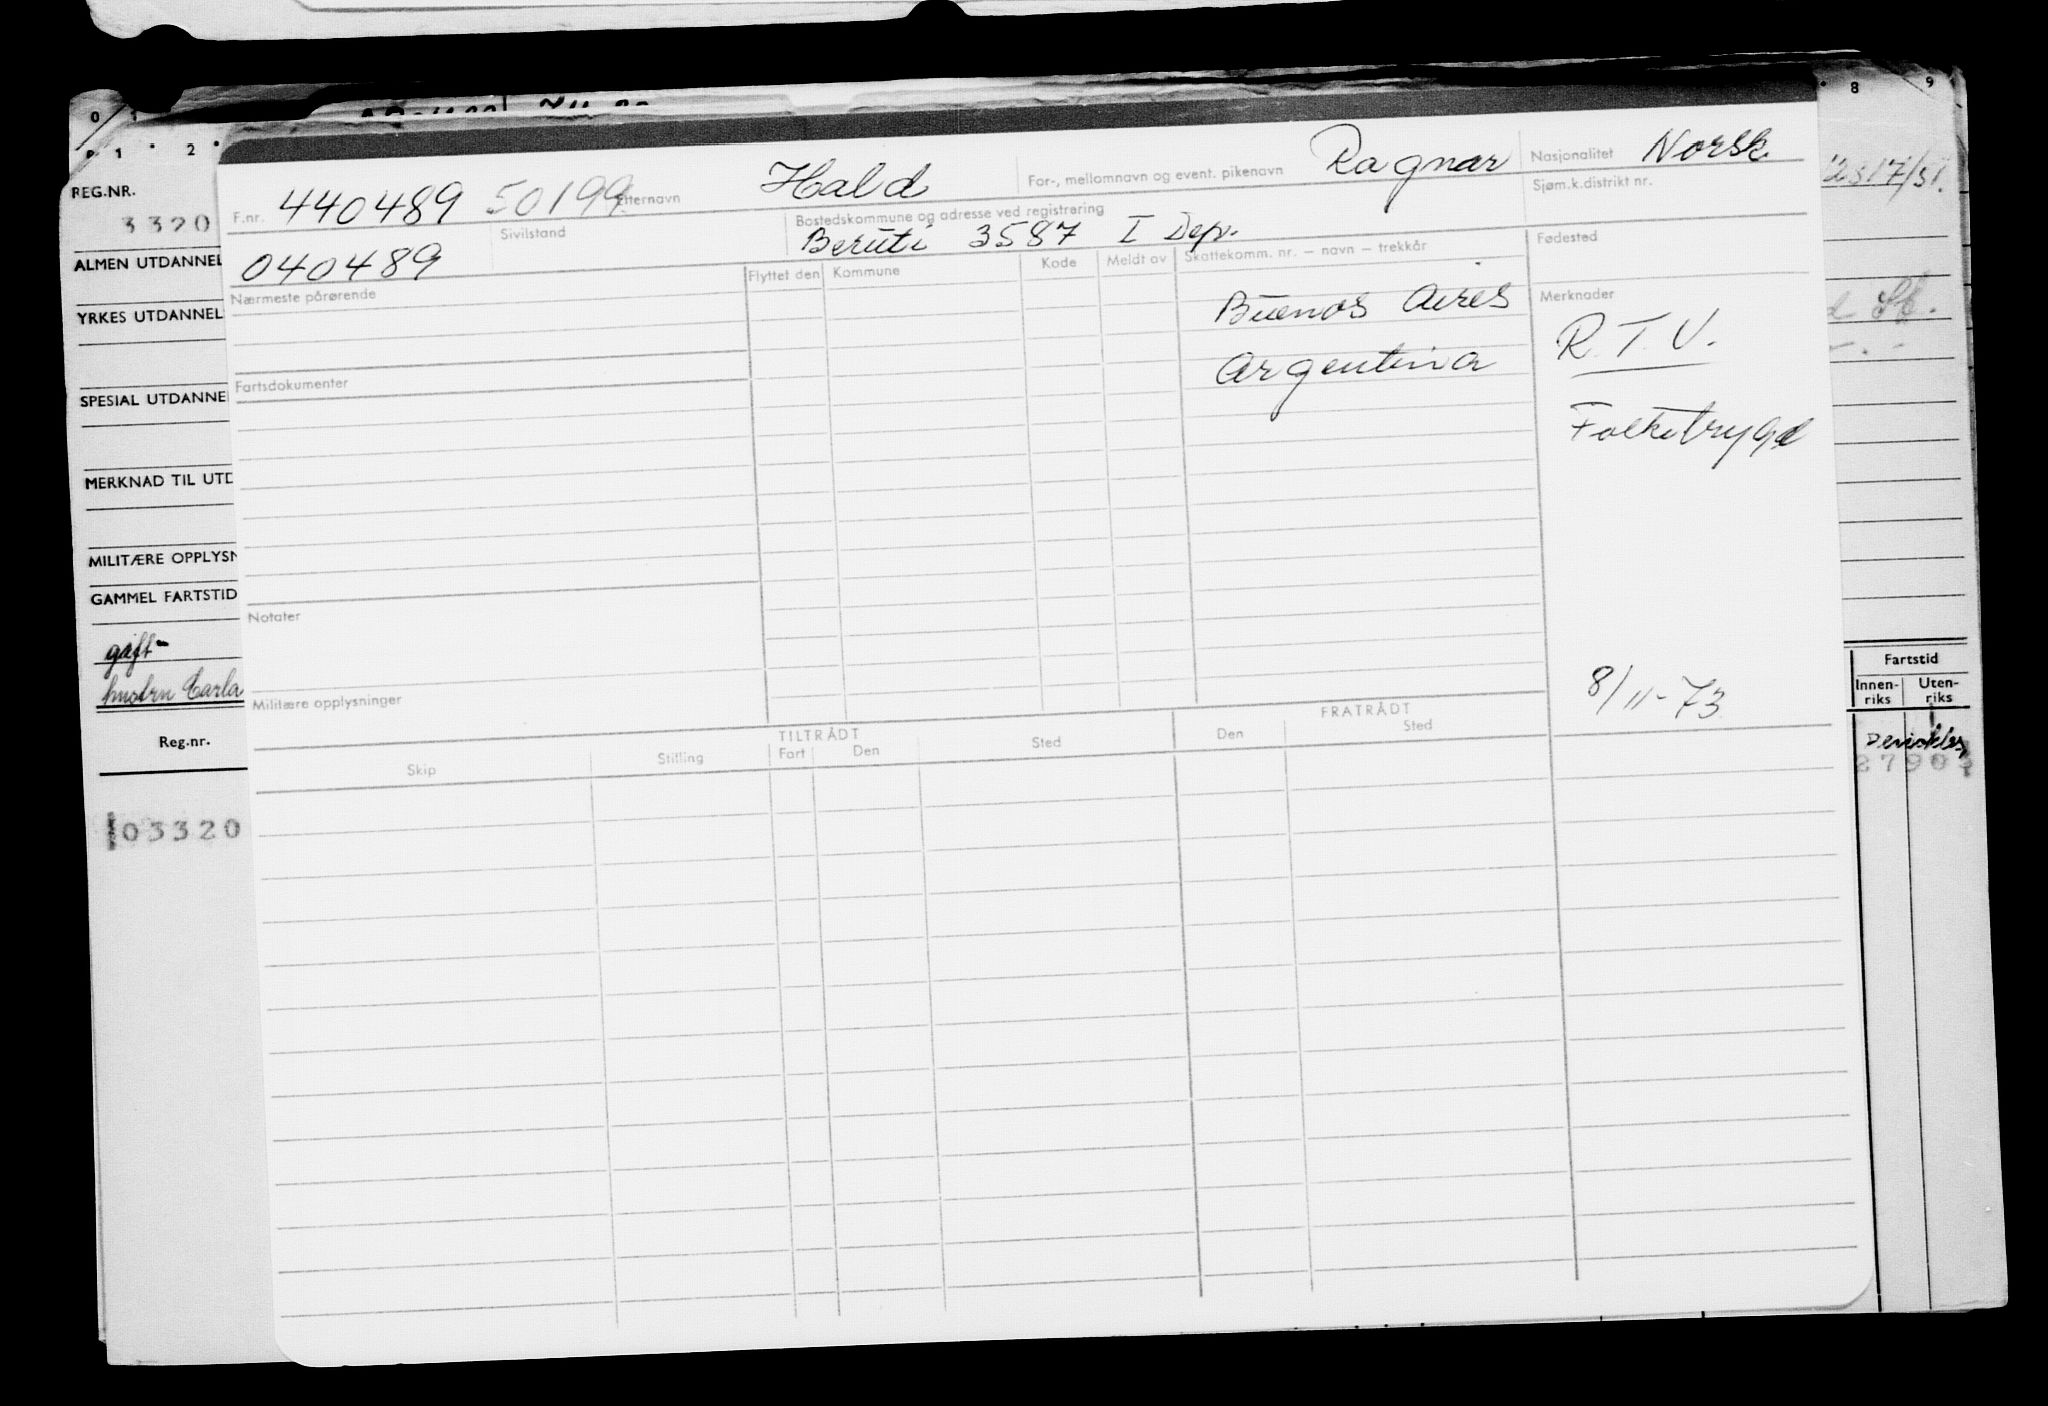 0 1 8 9
P 1 2
REG.NR.
3320
ALMEN UTDANNEL
YRKES UTDANNEL
SPESIAL UTDANNE
MERKNAD TIL UTD
MILITÆRE OPPLYSN
GAMMEL FARTSTID
gift
hustru Carla
Reg.nr.
103320
F.nr. 440489 50199 Etternavn Hald For-, mellomnavn og event. pikenavn Ragnar Nasjonalitet Norsk
040489 Sivilstand Bostedskommune og adresse ved registrering Sjøm.k.distrikt nr.
Beruti 3587 I Dep.
Nærmeste pårørende Flyttet den Kommune Kode Meldt av Skattekomm. nr. – navn – trekkår Fødested
Buenos Aires Merknader
Argentina R.T.V.
Fartsdokumenter
Folketrygd
Notater
Militære opplysninger
8/11-73
TILTRÅDT FRATRÅDT
Skip Stilling Fart Den Sted Den Sted
2317/51.
Fartstid
Innen-riks Uten-riks
2790